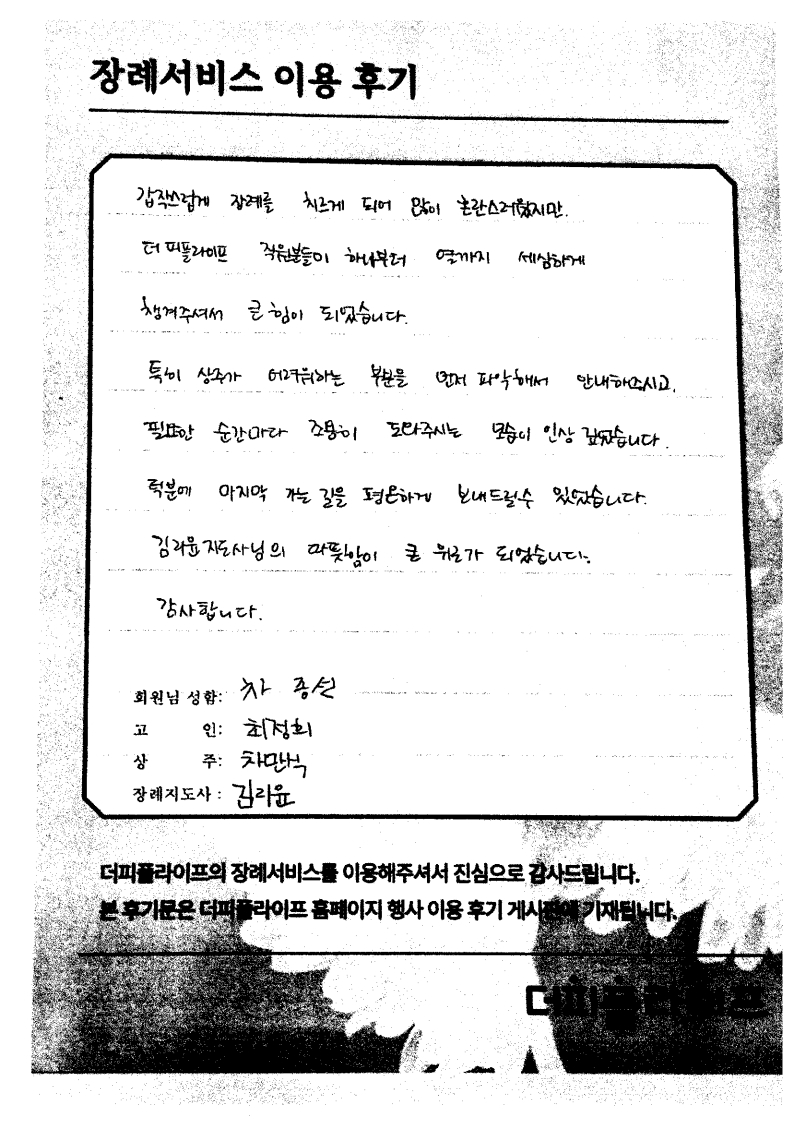 장례서비스 이용 후기
갑작스럽게 장례를 치르게 되어 많이 혼란스러웠지만.
더 피플라이프 직원분들이 하나부터 열까지 세심하게
챙겨주셔서 큰 힘이 되었습니다.
특히 상주가 어려워하는 부분을 먼저 파악해서 안내해주시고,
필요한 순간마다 조용히 도와주시는 모습이 인상 깊었습니다.
덕분에 마지막 가는 길을 평온하게 보내드릴수 있었습니다.
김라윤지도사님의 따뜻함이 큰 위로가 되었습니다.
감사합니다.
회원님 성함: 차 종선
고 인: 최정희
상 주: 차만석
장례지도사 : 김라윤
더피플라이프의 장례서비스를 이용해주셔서 진심으로 감사드립니다.
본 후기문은 더피플라이프 홈페이지 행사 이용 후기 게시판에 기재됩니다.
더피플라이프